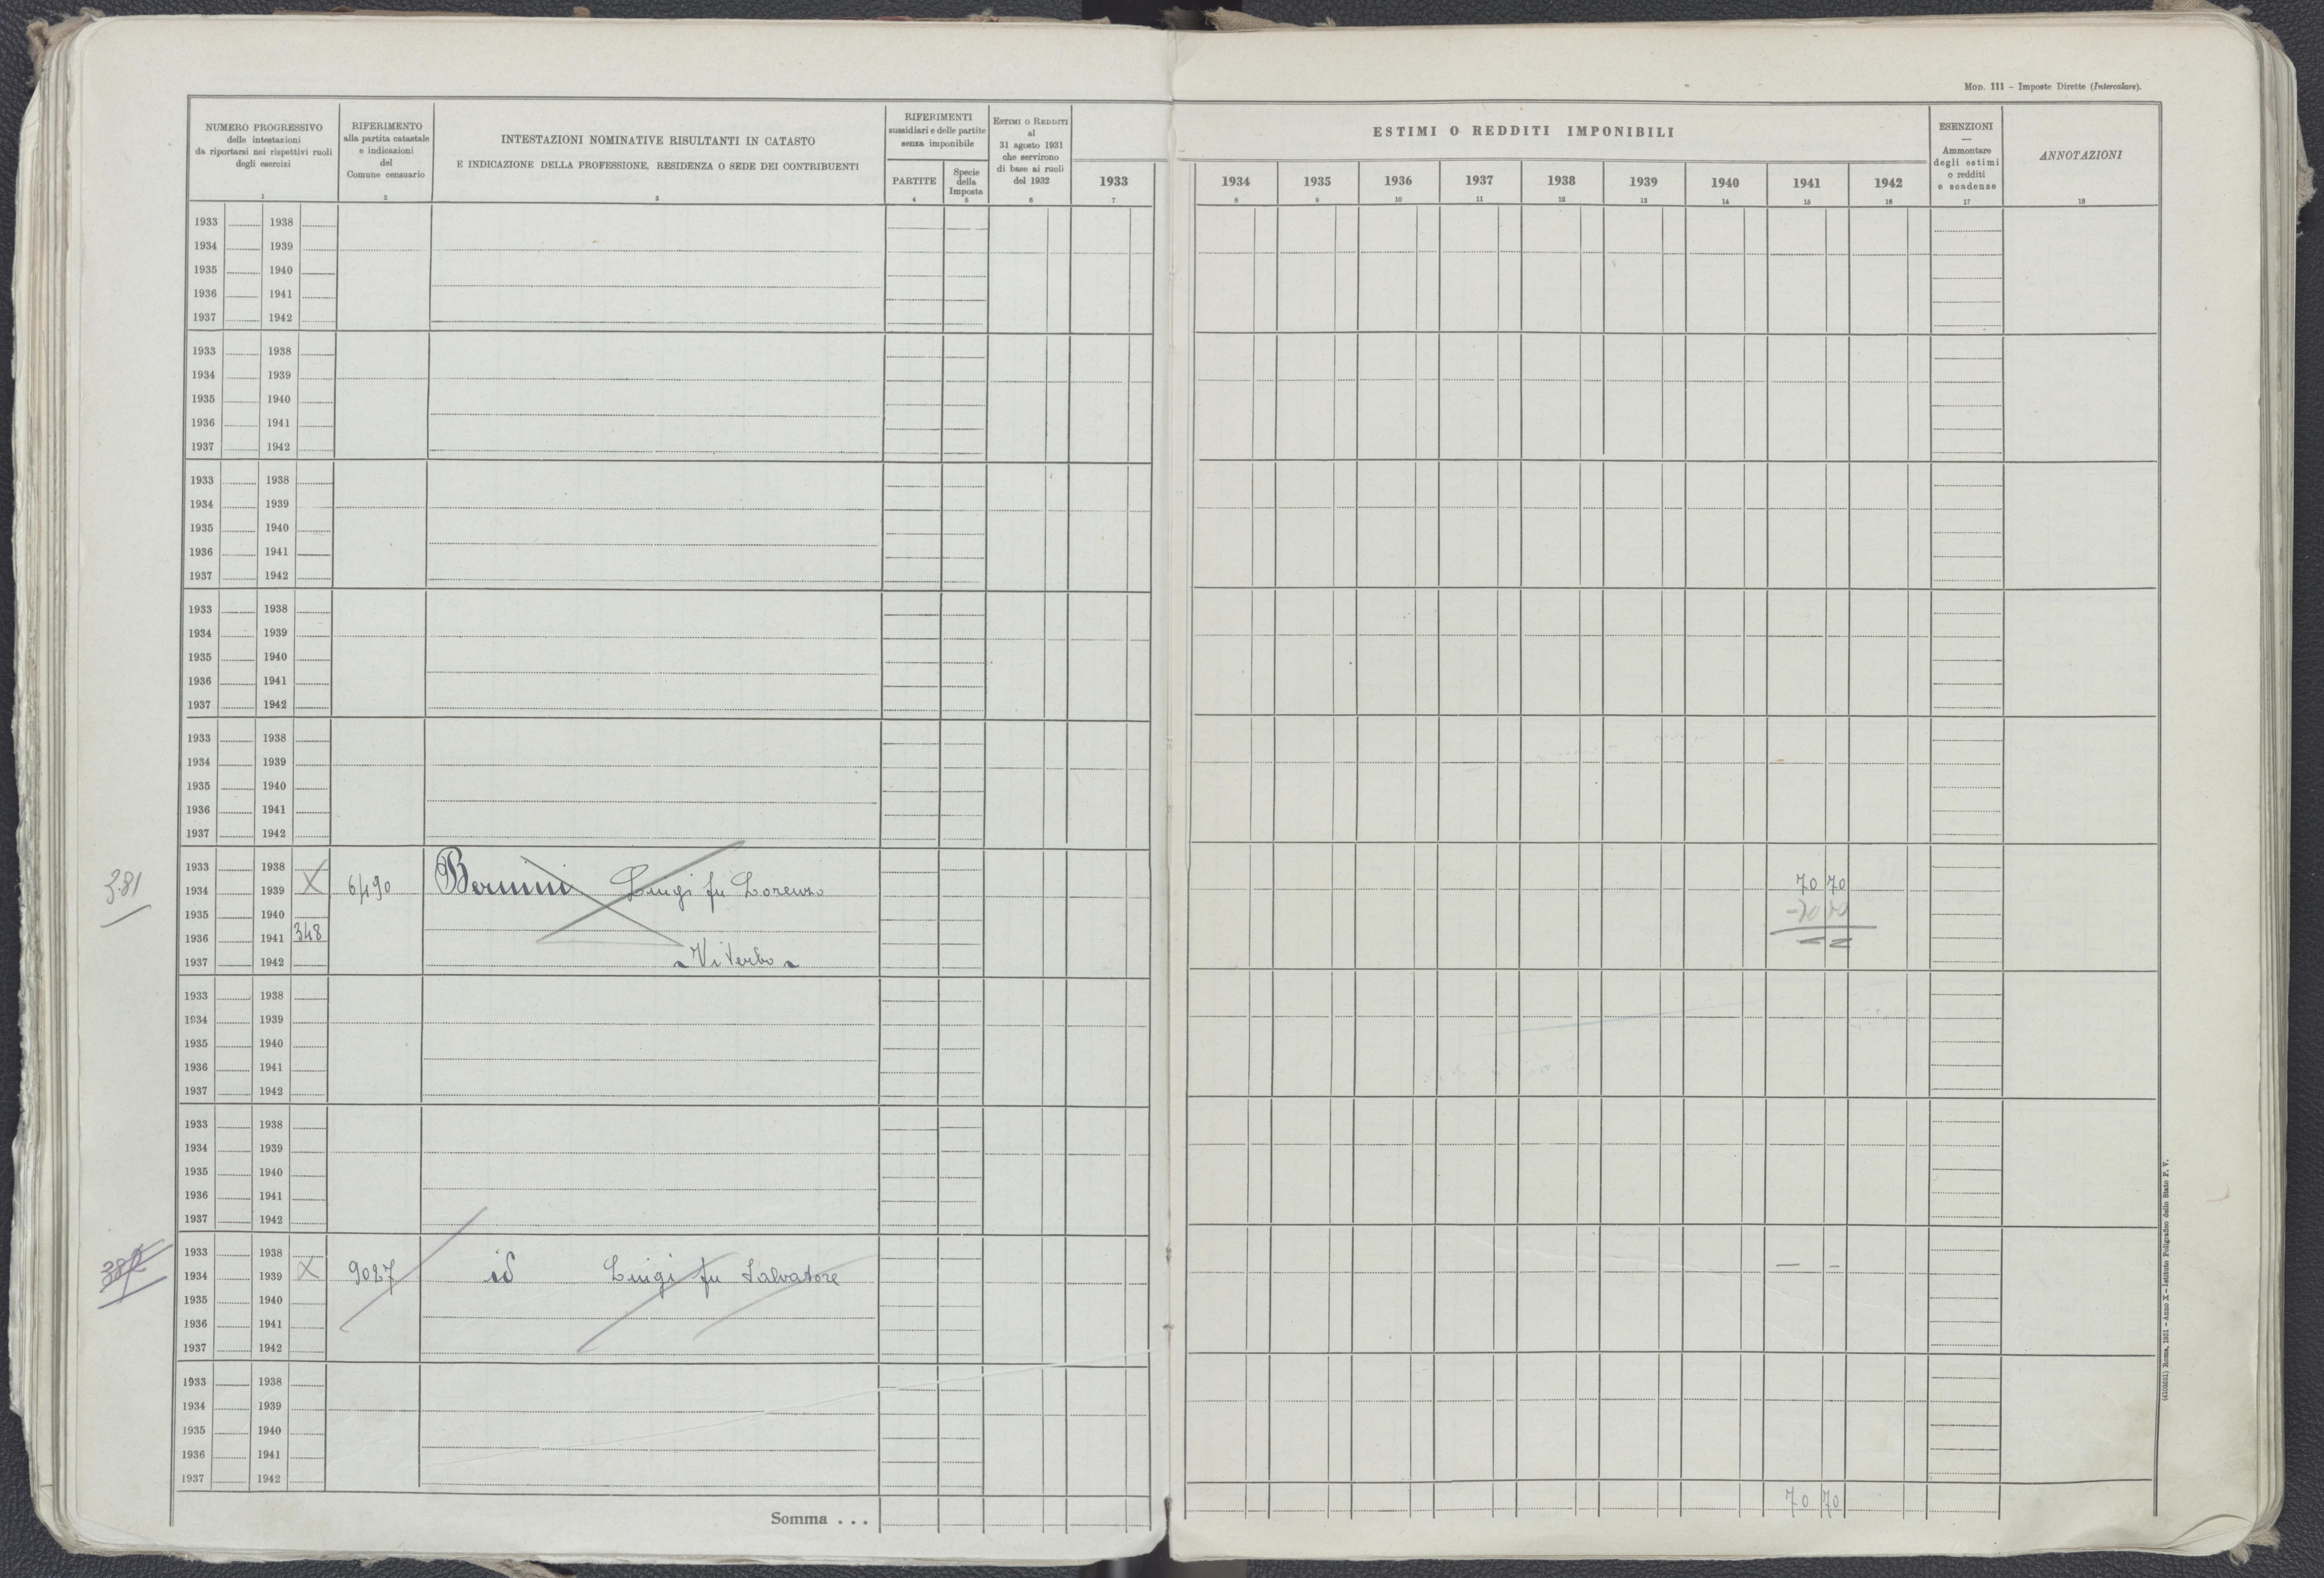 Mod. 111 – Imposte Dirette (Intercalare).
NUMERO PROGRESSIVO
delle intestazioni
da riportarsi nei rispettivi ruoli
degli esercizi
1
RIFERIMENTO
alla partita catastale
e indicazioni
del
Comune censuario
2
INTESTAZIONI NOMINATIVE RISULTANTI IN CATASTO
E INDICAZIONE DELLA PROFESSIONE, RESIDENZA O SEDE DEI CONTRIBUENTI
3
RIFERIMENTI
sussidiari e delle partite
senza imponibile
PARTITE
4
Specie
della
Imposta
5
Estimi o Redditi
al
31 agosto 1931
che servirono
di base ai ruoli
del 1932
6
ESTIMI O REDDITI IMPONIBILI
1933 1934 1935 1936 1937 1938 1939 1940 1941 1942
7 8 9 10 11 12 13 14 15 16
ESENZIONI
—
Ammontare
degli estimi
o redditi
e scadenze
17
ANNOTAZIONI
18
1933 1938
1934 1939
1935 1940
1936 1941
1937 1942
1933 1938
1934 1939
1935 1940
1936 1941
1937 1942
1933 1938
1934 1939
1935 1940
1936 1941
1937 1942
1933 1938
1934 1939
1935 1940
1936 1941
1937 1942
1933 1938
1934 1939
1935 1940
1936 1941
1937 1942
1933 1938
381 1934 1939 X 6490 Bernini Luigi fu Lorenzo 70 70
1935 1940 -70 70
1936 1941 348
1937 1942 Viterbo
1933 1938
1934 1939
1935 1940
1936 1941
1937 1942
1933 1938
1934 1939
1935 1940
1936 1941
1937 1942
1933 1938
382 1934 1939 X 9027 id Luigi fu Salvatore — –
1935 1940
1936 1941
1937 1942
1933 1938
1934 1939
1935 1940
1936 1941
1937 1942
Somma . . . 70 70
(4103531) Roma, 1931 – Anno X – Istituto Poligrafico dello Stato P. V.